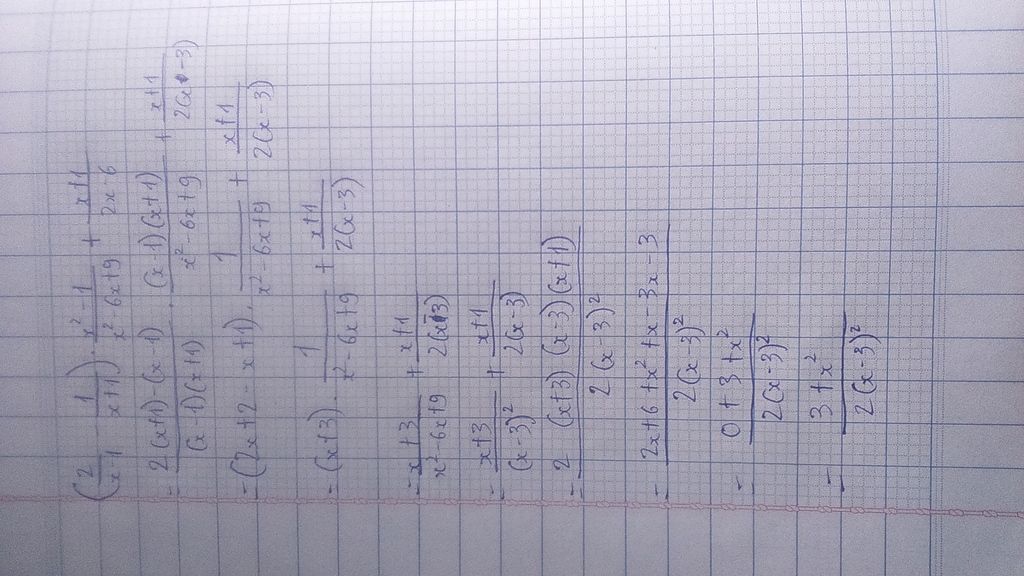 (2/(x-1) - 1/(x+1)) · (x²-1)/(x²-6x+9) + (x+1)/(2x-6)
- (2(x+1)-(x-1))/((x-1)(x+1)) · ((x-1)(x+1))/(x²-6x+9) + (x+1)/(2(x-3))
- (2x+2-x+1) · 1/(x²-6x+9) + (x+1)/(2(x-3))
- (x+3) · 1/(x²-6x+9) + (x+1)/(2(x-3))
- (x+3)/(x²-6x+9) + (x+1)/(2(x-3))
- (x+3)/(x-3)² + (x+1)/(2(x-3))
- (2 (x+3) (x-3)(x+1))/(2(x-3)²)
- (2x+6+x²+x-3x-3)/(2(x-3)²)
- (0+3+x²)/(2(x-3)²)
- (3+x²)/(2(x-3)²)